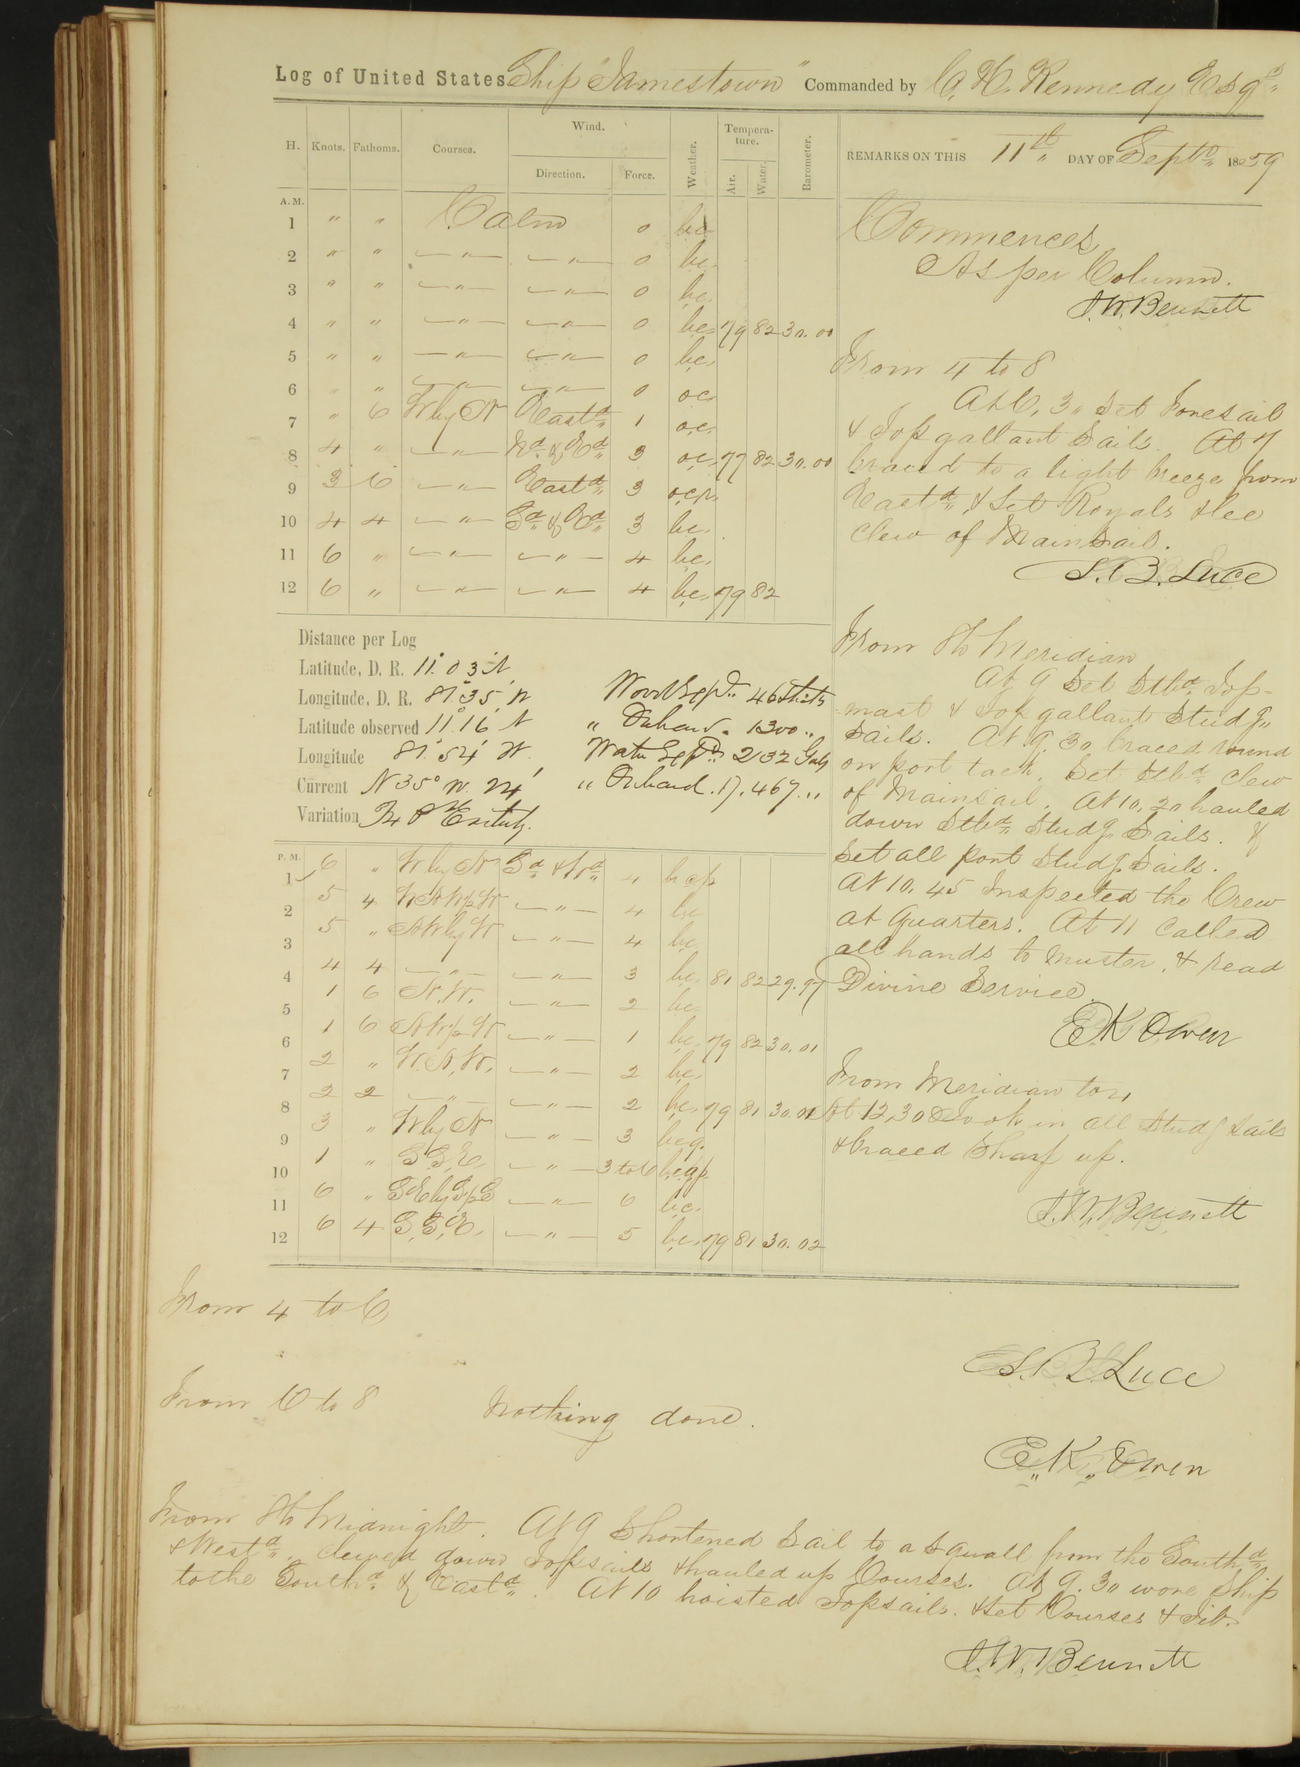 Log of United States Ship "Jamestown" Commanded by C. H. Kennedy Esqr.
H. Knots. Fathoms. Courses. Wind. Direction. Force. Weather. Temperature. Air. Water. Barometer.
REMARKS ON THIS 11th DAY OF Septr. 1859
A.M.
1 " " Calm 0 bc
2 " " — " — — " — 0 bc
3 " " — " — — " — 0 bc
4 " " — " — — " — 0 bc 79 82 30.00
5 " " — " — — " — 0 bc
6 " " — " — — " — 0 oc
7 " 6 W by N Eastd. 1 oc
8 4 " — " — Nd. & Ed. 3 oc 77 82 30.00
9 3 6 — " — Eastd. 3 ocp
10 4 4 — " — Sd. & Ed. 3 bc
11 6 " — " — — " — 4 bc
12 6 " — " — — " — 4 bc 79 82
Distance per Log
Latitude, D. R. 11° 03' N
Longitude, D. R. 81° 35' W
Latitude observed 11° 16' N
Longitude 81° 54' W
Current N 35° W. 24'
Variation
Wood 46 Sticks
" Onhand 1300 "
Water 232 Gals
" Onhand 17,467 "
P.M.
1 6 " W by N Sd. & Wd. 4 bcp
2 5 4 — " — 4 bc
3 5 " NW by W — " — 4 bc
4 4 4 — " — — " — 3 bc 81 82 29.97
5 1 6 N.W. — " — 2 bc
6 1 6 — " — 1 bc 79 82 30.01
7 2 " W.N.W. — " — 2 bc
8 2 2 — " — — " — 2 bc 79 81 30.01
9 3 " W by N — " — 3 bcq
10 1 " S.S.E. — " — 3 to 6 bcqp
11 6 " — " — 6 bc
12 6 4 S.S.E. — " — 5 bc 79 81 30.02
Commences
As per Column.
J. W. Bennett
From 4 to 8
At 6,30 Set Foresail
& Top gallant Sails. At 7
braced to a light breeze from
Eastd. & Set Royals & lee
clew of Mainsail.
S. B. Luce
From 8 to Meridian
At 9 Set Stbd. Top-
mast & Top gallant Studg
Sails. At 9.30 braced round
on port tack. Set Stbd. Clew
of Mainsail. At 10,20 hauled
down Stbd. Studg Sails. &
Set all port Studg. Sails.
At 10.45 Inspected the Crew
at Quarters. At 11 Called
all hands to muster, & read
Divine Service.
E K Owen
From Meridian to 4
At 12,30 Took in all Studg sails
& braced Sharp up.
J. W. Bennett
From 4 to 6
S. B. Luce
From 6 to 8 Nothing done.
E. K. Owen
From 8 to Midnight. At 9 Shortened Sail to a Squall from the Southd.
& Westd. clewed down Topsails & hauled up Courses. At 9.30 wore Ship
to the Southd. & Eastd. At 10 hoisted Topsails. & Set Courses & Jib.
J. W. Bennett